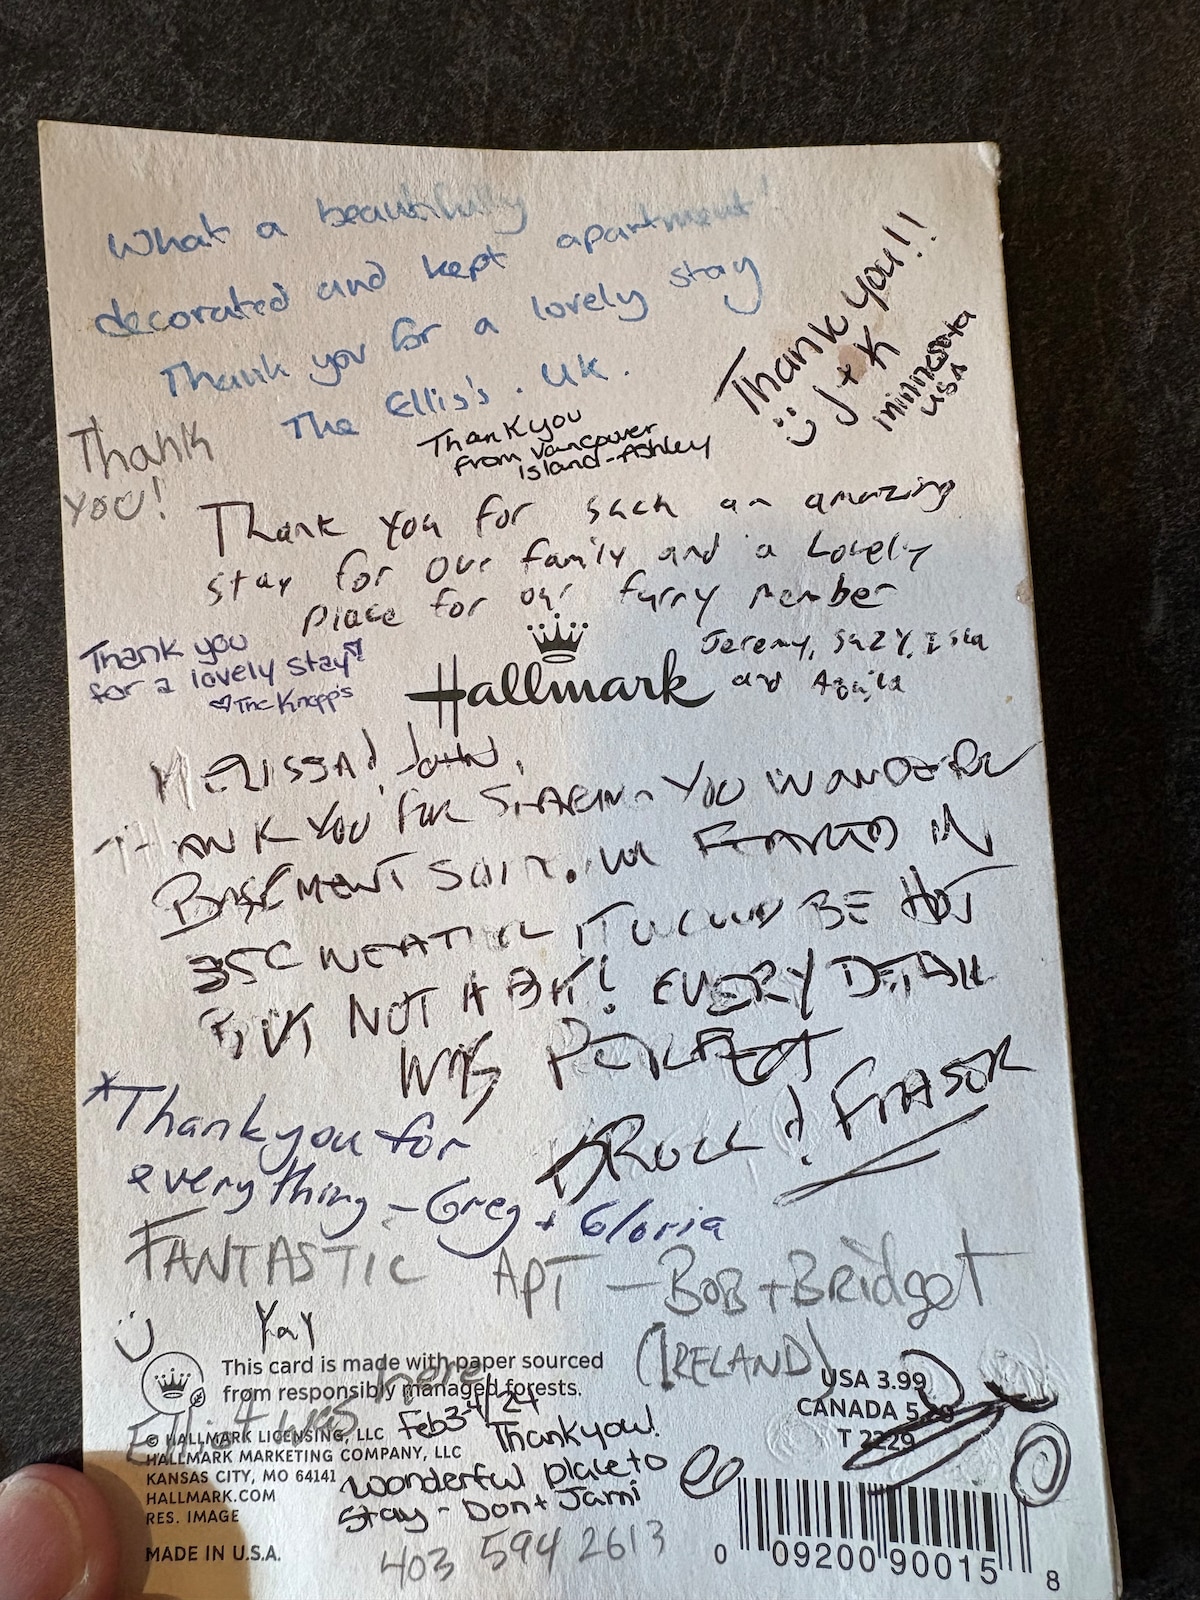 What a beautifully
decorated and kept apartment!
Thank you for a lovely stay
The Ellis's. UK.
Thank you!!
J + K
minnesota
USA
Thank you
from Vancouver
Island-Ashley
Thank
you!
Thank you for such an amazing
stay for our family and a Lovely
place for our furry member
Jeremy, Suzy, Isla
and Aquila
Thank you
for a lovely stay
The Knapp's
Hallmark
MELISSA & JOHN,
THANK YOU FOR SHARING YOU WONDERFUL
BASEMENT SUITE. WE FEARED IN
35C WEATHER IT WOULD BE HOT
BUT NOT A BIT! EVERY DETAIL
WAS PERFECT
& FRASER
*Thankyou for
everything - Greg + Gloria
FANTASTIC APT - BOB + Bridget
(IRELAND)
Yay
This card is made with paper sourced
from responsibly managed forests.
Elliot was here
Feb3-4/24
© HALLMARK LICENSING, LLC
HALLMARK MARKETING COMPANY, LLC
KANSAS CITY, MO 64141
HALLMARK.COM
RES. IMAGE
MADE IN U.S.A.
Thankyou!
Wonderful place to
stay - Don + Jami
403 594 2613
USA 3.99
CANADA 5
T 2229
0 09200 90015 8